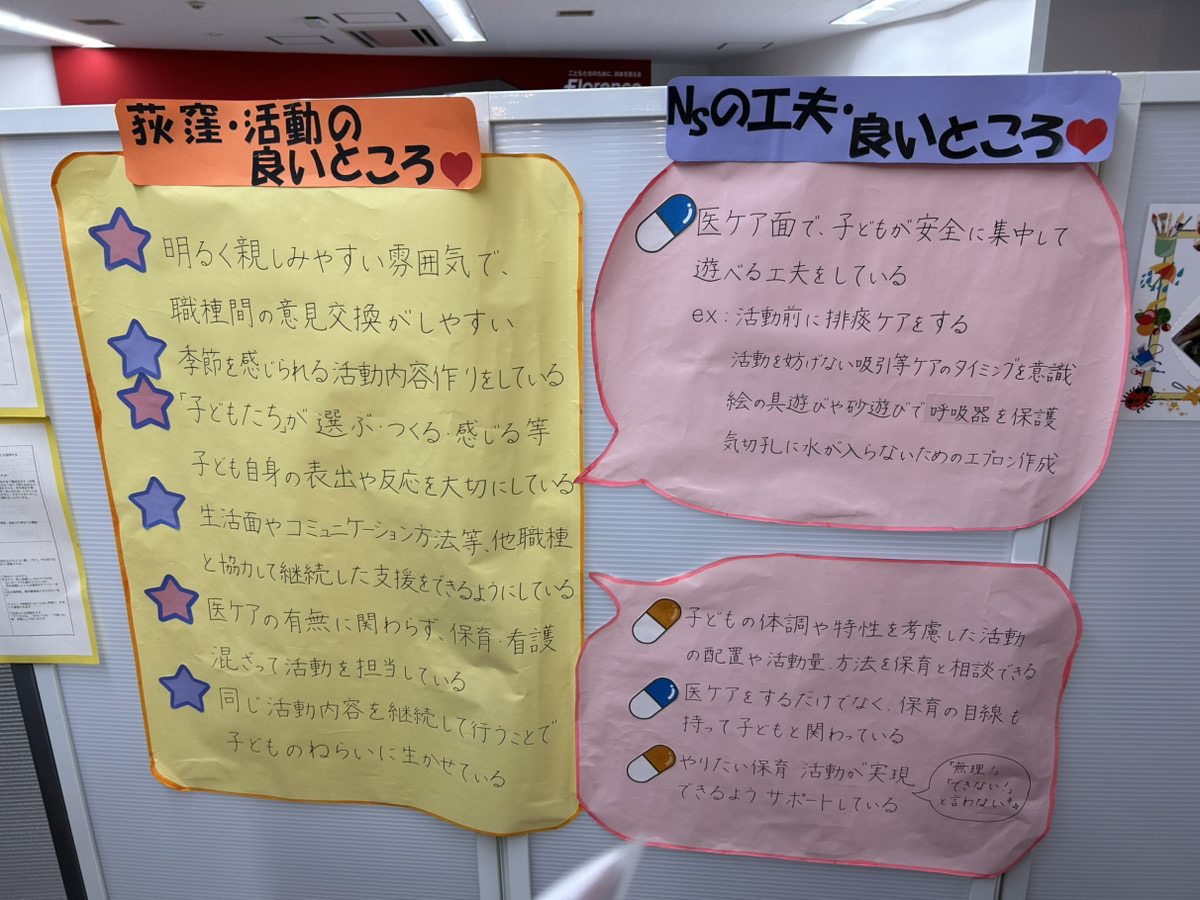 こどもたちのために、日本を変える
Florence
荻窪・活動の
良いところ
明るく親しみやすい雰囲気で、
職種間の意見交換がしやすい
季節を感じられる活動内容作りをしている
「子どもたち」が選ぶ・つくる・感じる等
子ども自身の表出や反応を大切にしている
生活面やコミュニケーション方法等、他職種
と協力して継続した支援をできるようにしている
医ケアの有無に関わらず、保育・看護
混ざって活動を担当している
同じ活動内容を継続して行うことで
子どものねらいに生かせている
Nsの工夫・
良いところ
医ケア面で、子どもが安全に集中して
遊べる工夫をしている
ex:活動前に排痰ケアをする
活動を妨げない吸引等ケアのタイミングを意識
絵の具遊びや砂遊びで呼吸器を保護
気切孔に水が入らないためのエプロン作成
子どもの体調や特性を考慮した活動
の配置や活動量、方法を保育と相談できる
医ケアをするだけでなく、保育の目線も
持って子どもと関わっている
やりたい保育、活動が実現
できるようサポートしている
「無理!」
「できない!」
と言わない